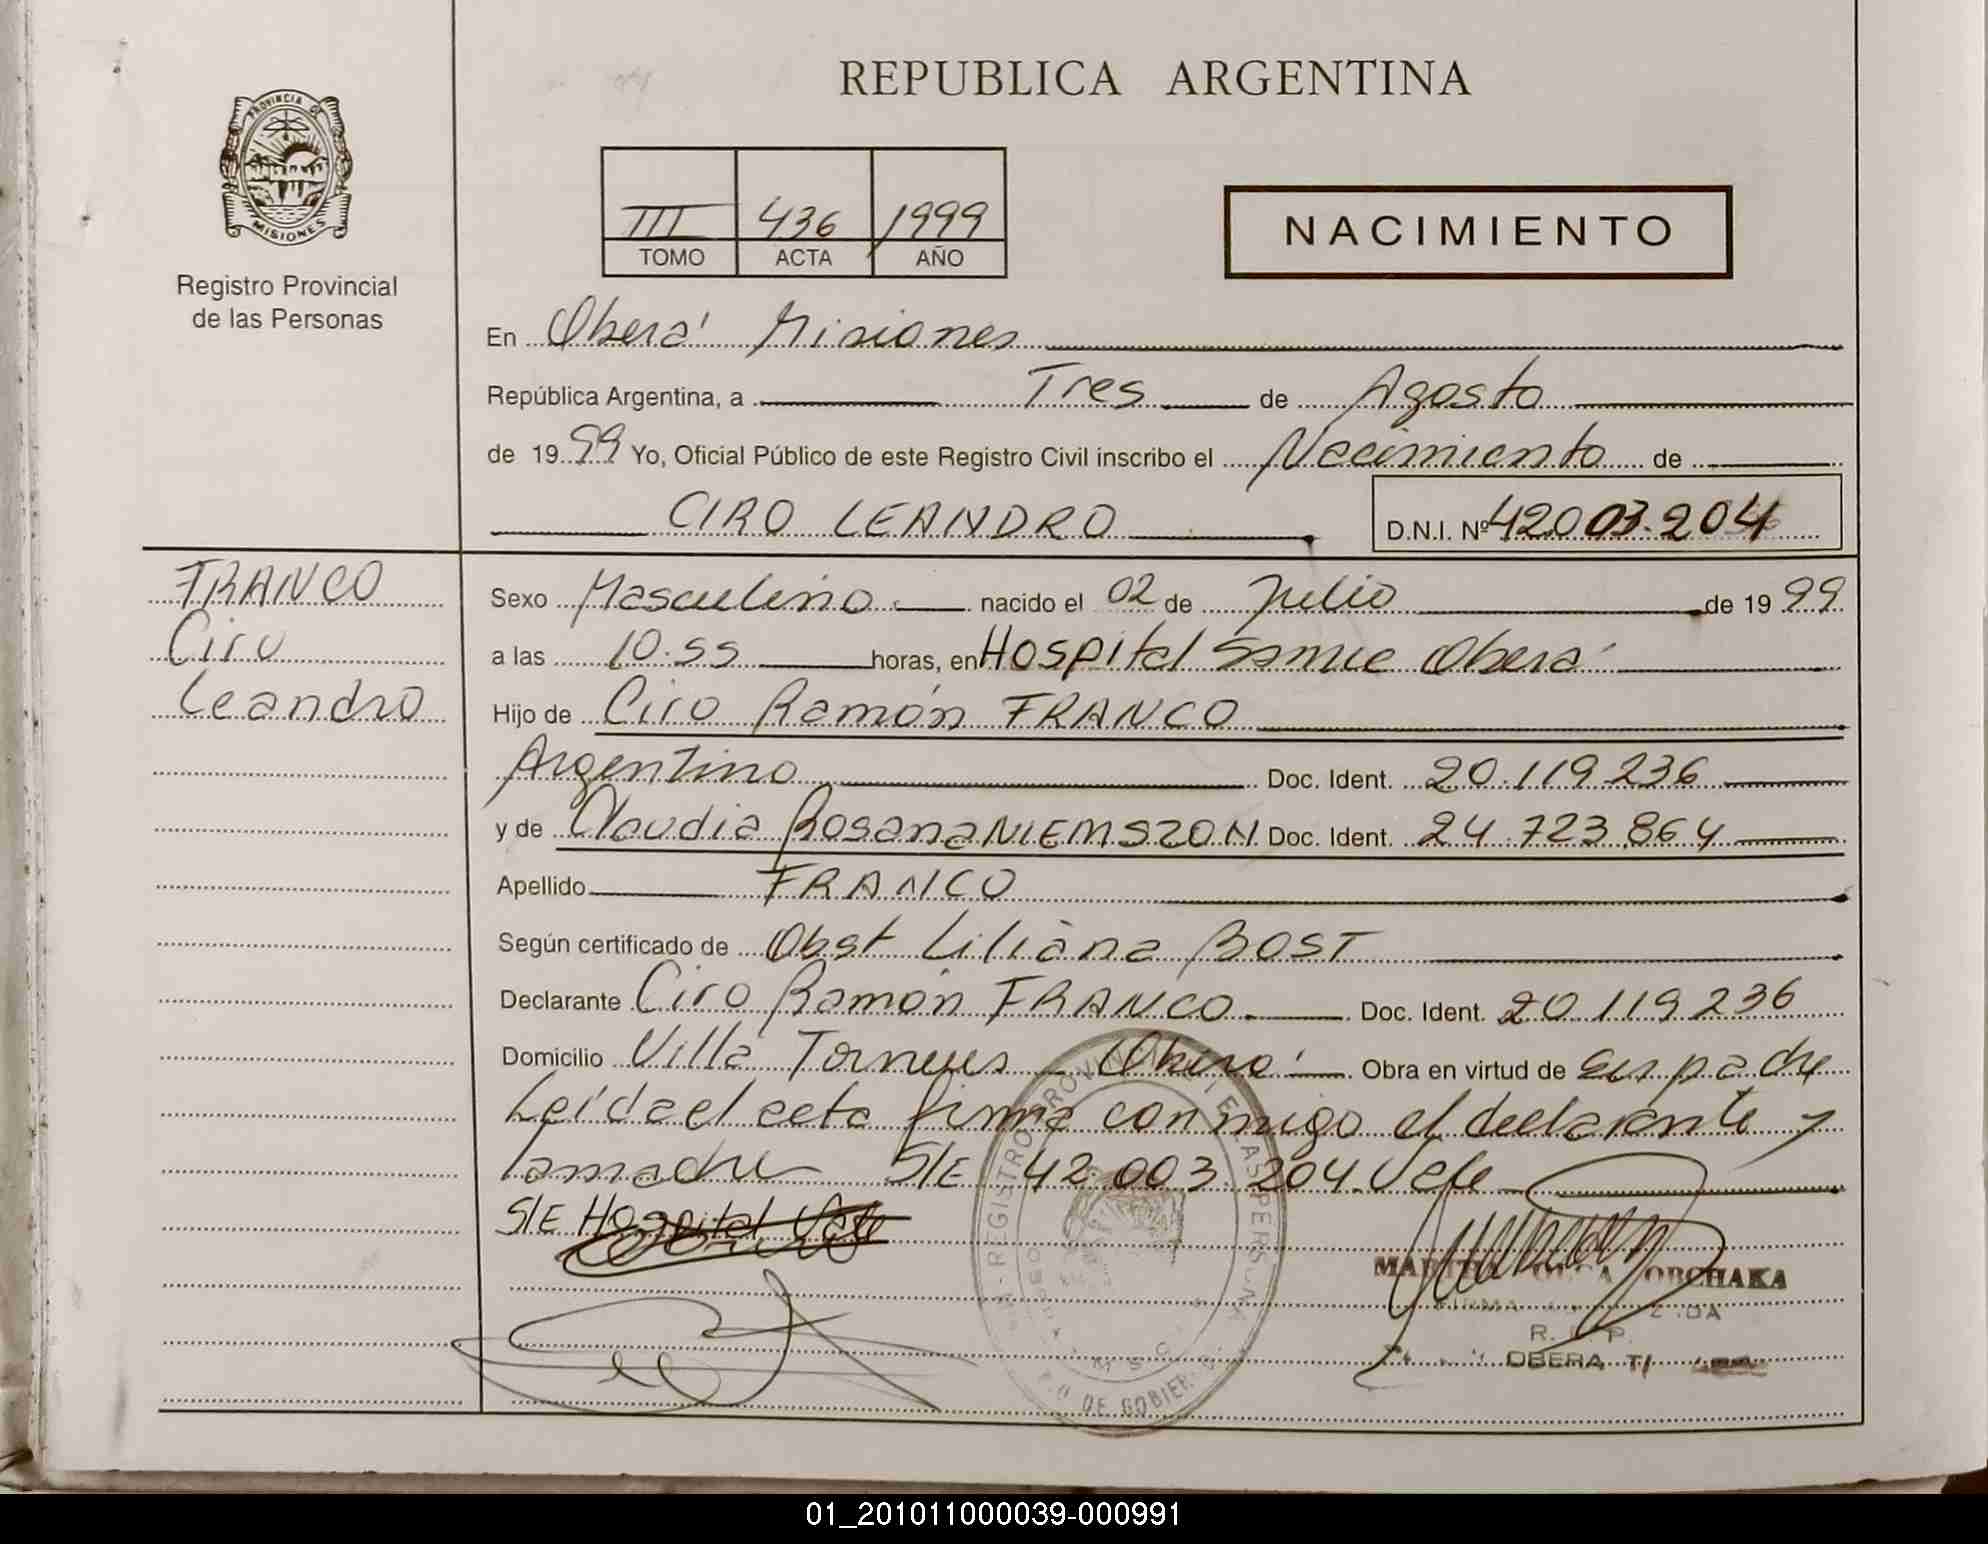 REPUBLICA ARGENTINA
PROVINCIA DE
MISIONES
Registro Provincial
de las Personas
III 436 1999
TOMO ACTA AÑO
NACIMIENTO
En Oberá Misiones
República Argentina, a Tres de Agosto
de 1999 Yo, Oficial Público de este Registro Civil inscribo el Nacimiento de
CIRO LEANDRO D.N.I. Nº 42003.204
FRANCO
Ciro
Leandro
Sexo Masculino nacido el 02 de Julio de 1999
a las 10.55 horas, en Hospital Samic Oberá
Hijo de Ciro Ramón FRANCO
Argentino Doc. Ident. 20.119.236
y de Claudia Rosana NIEMSZON Doc. Ident. 24.723.864
Apellido FRANCO
Según certificado de Obst Liliana BOST
Declarante Ciro Ramón FRANCO Doc. Ident. 20.119.236
Domicilio Villa Oberá Obra en virtud de su padre
Leída el acta firma conmigo el declarante y
la madre S/E 42.003.204. Vale
S/E Hospital Vale
OBERA
01_201011000039-000991